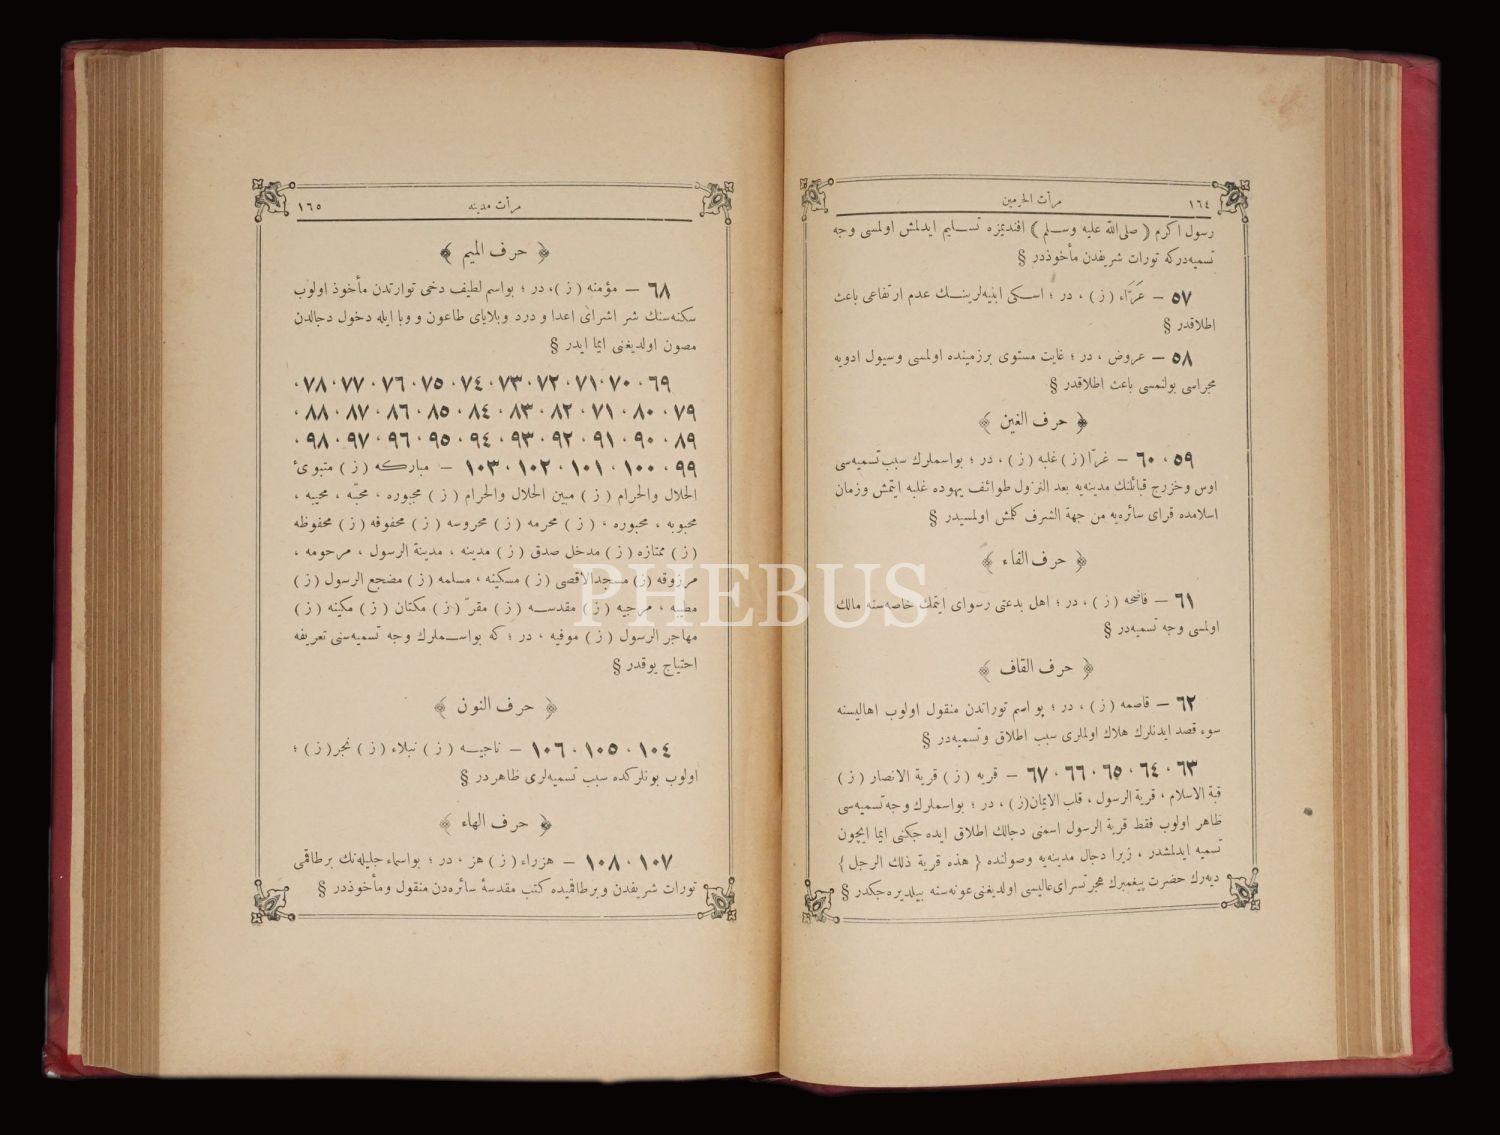 ١٦٤
مرآت الحرمين
رسول اكرم ( صلى الله عليه وسلم ) افنديمزه تسليم ايدلمش اولمسى وجه
تسميه‌دركه تورات شريفدن مأخوذدر §
٥٧ – عَرَّاء ( ز ) ، در ؛ اسكى ابنيه‌لرينك عدم ارتفاعى باعث
اطلاقدر §
٥٨ – عروض ، در ؛ غايت مستوى برزمينده اولمسى وسيول ادويه
مجراسى بولنمسى باعث اطلاقدر §
﴿ حرف الغين ﴾
٥٩ ، ٦٠ – غرّا ( ز ) غلبه ( ز ) ، در ؛ بواسملرك سبب تسميه‌سى
اوس وخزرج قبائلنك مدينه‌يه بعد النزول طوائف يهوده غلبه ايتمش وزمان
اسلامده قراى سائره‌يه من جهة الشرف كلمش اولمسيدر §
﴿ حرف الفاء ﴾
٦١ – فاضحه ( ز ) ، در ؛ اهل بدعتى رسواى ايتمك خاصه‌سنه مالك
اولمسى وجه تسميه‌در §
﴿ حرف القاف ﴾
٦٢ – قاصمه ( ز ) ، در ؛ بو اسم توراتدن منقول اولوب اهاليسنه
سوء قصد ايدنلرك هلاك اولملرى سبب اطلاق وتسميه‌در §
٦٣ ، ٦٤ ، ٦٥ ، ٦٦ ، ٦٧ – قريه ( ز ) قرية الانصار ( ز )
قبة الاسلام ، قرية الرسول ، قلب الايمان ( ز ) ، در ؛ بواسملرك وجه تسميه‌سى
ظاهر اولوب فقط قرية الرسول اسمنى دجالك اطلاق ايده جكنى ايما ايچون
تسميه ايدلمشدر ، زيرا دجال مدينه‌يه وصولنده { هذه قرية ذلك الرجل }
ديه‌رك حضرت پيغمبرك هجرتسراى عاليسى اولديغنى عونه‌سنه بيلديره‌جكدر §
مرآت مدينه
١٦٥
﴿ حرف الميم ﴾
٦٨ – مؤمنه ( ز ) ، در ؛ بواسم لطيف دخى تواراتدن مأخوذ اولوب
سكنه‌سنك شر اشراى اعدا و درد وبلاياى طاعون و وبا ايله دخول دجالدن
مصون اولديغنى ايما ايدر §
٦٩ ، ٧٠ ، ٧١ ، ٧٢ ، ٧٣ ، ٧٤ ، ٧٥ ، ٧٦ ، ٧٧ ، ٧٨ ،
٧٩ ، ٨٠ ، ٧١ ، ٨٢ ، ٨٣ ، ٨٤ ، ٨٥ ، ٨٦ ، ٨٧ ، ٨٨ ،
٨٩ ، ٩٠ ، ٩١ ، ٩٢ ، ٩٣ ، ٩٤ ، ٩٥ ، ٩٦ ، ٩٧ ، ٩٨ ،
٩٩ ، ١٠٠ ، ١٠١ ، ١٠٢ ، ١٠٣ – مباركه ( ز ) متبوىٔ
الحلال والحرام ( ز ) مبين الحلال والحرام ( ز ) مجبوره ، محبّه ، محيبه ،
محبوبه ، محبوره ، ( ز ) محرمه ( ز ) محروسه ( ز ) محفوفه ( ز ) محفوظه
( ز ) ممتازه ( ز ) مدخل صدق ( ز ) مدينه ، مدينة الرسول ، مرحومه ،
مرزوقه ( ز ) مسجدالاقصى ( ز ) مسكينه ، مسلمه ( ز ) مضجع الرسول ( ز )
مطيبه ، مرجيه ( ز ) مقدسه ( ز ) مقرّ ( ز ) مكتان ( ز ) مكينه ( ز )
مهاجر الرسول ( ز ) موفيه ، در ؛ كه بواسملرك وجه تسميه‌سنى تعريفه
احتياج يوقدر §
﴿ حرف النون ﴾
١٠٤ ، ١٠٥ ، ١٠٦ – ناجيه ( ز ) نبلاء ( ز ) نجر ( ز ) ؛
اولوب بونلركده سبب تسميه‌لرى ظاهردر §
﴿ حرف الهاء ﴾
١٠٧ ، ١٠٨ – هزراء ( ز ) هز ، در ؛ بواسماء جليله‌نك برطاقمى
تورات شريفدن وبرطاقميده كتب مقدسهٔ سائره‌دن منقول ومأخوذدر §
PHEBUS